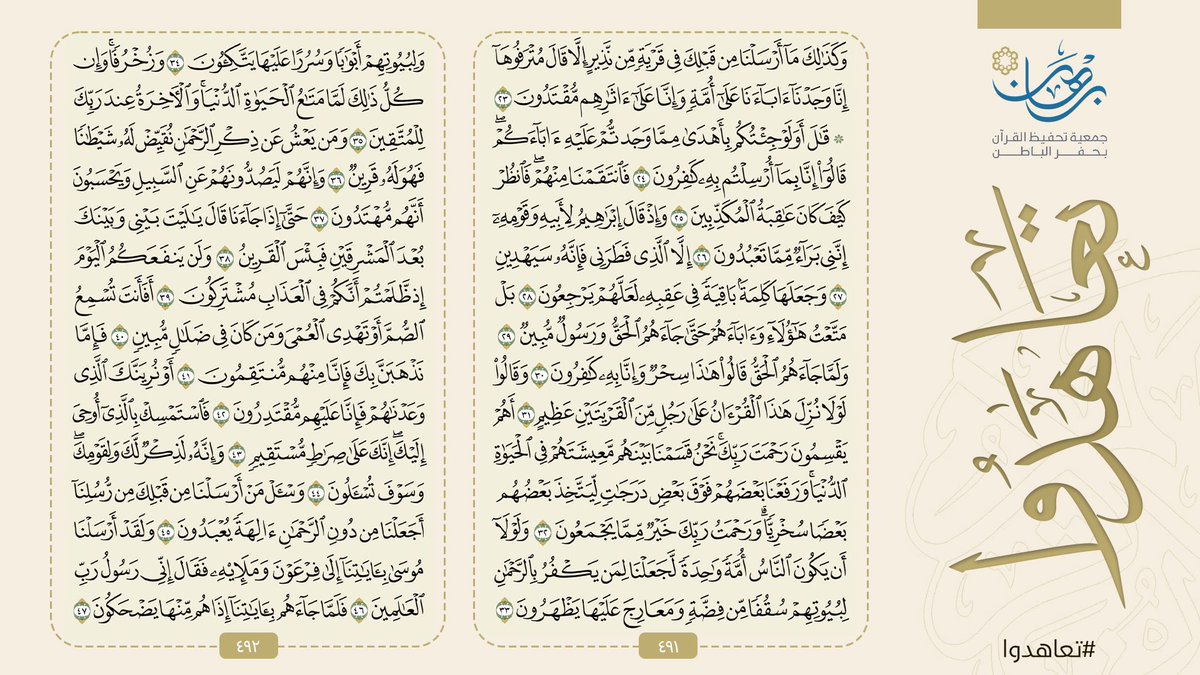 برهان
جمعية تحفيظ القرآن
بحفر الباطن
تعاهدوا
#تعاهدوا
وَكَذَٰلِكَ مَآ أَرْسَلْنَا مِن قَبْلِكَ فِى قَرْيَةٍ مِّن نَّذِيرٍ إِلَّا قَالَ مُتْرَفُوهَآ
إِنَّا وَجَدْنَآ ءَابَآءَنَا عَلَىٰٓ أُمَّةٍ وَإِنَّا عَلَىٰٓ ءَاثَٰرِهِم مُّقْتَدُونَ ٢٣
۞ قَٰلَ أَوَلَوْ جِئْتُكُم بِأَهْدَىٰ مِمَّا وَجَدتُّمْ عَلَيْهِ ءَابَآءَكُمْ ۖ
قَالُوٓا۟ إِنَّا بِمَآ أُرْسِلْتُم بِهِۦ كَٰفِرُونَ ٢٤ فَٱنتَقَمْنَا مِنْهُمْ ۖ فَٱنظُرْ
كَيْفَ كَانَ عَٰقِبَةُ ٱلْمُكَذِّبِينَ ٢٥ وَإِذْ قَالَ إِبْرَٰهِيمُ لِأَبِيهِ وَقَوْمِهِۦٓ
إِنَّنِى بَرَآءٌ مِّمَّا تَعْبُدُونَ ٢٦ إِلَّا ٱلَّذِى فَطَرَنِى فَإِنَّهُۥ سَيَهْدِينِ
٢٧ وَجَعَلَهَا كَلِمَةًۢ بَاقِيَةً فِى عَقِبِهِۦ لَعَلَّهُمْ يَرْجِعُونَ ٢٨ بَلْ
مَتَّعْتُ هَٰٓؤُلَآءِ وَءَابَآءَهُمْ حَتَّىٰ جَآءَهُمُ ٱلْحَقُّ وَرَسُولٌ مُّبِينٌ ٢٩
وَلَمَّا جَآءَهُمُ ٱلْحَقُّ قَالُوا۟ هَٰذَا سِحْرٌ وَإِنَّا بِهِۦ كَٰفِرُونَ ٣٠ وَقَالُوا۟
لَوْلَا نُزِّلَ هَٰذَا ٱلْقُرْءَانُ عَلَىٰ رَجُلٍ مِّنَ ٱلْقَرْيَتَيْنِ عَظِيمٍ ٣١ أَهُمْ
يَقْسِمُونَ رَحْمَتَ رَبِّكَ ۚ نَحْنُ قَسَمْنَا بَيْنَهُم مَّعِيشَتَهُمْ فِى ٱلْحَيَوٰةِ
ٱلدُّنْيَا ۚ وَرَفَعْنَا بَعْضَهُمْ فَوْقَ بَعْضٍ دَرَجَٰتٍ لِّيَتَّخِذَ بَعْضُهُم
بَعْضًا سُخْرِيًّا ۗ وَرَحْمَتُ رَبِّكَ خَيْرٌ مِّمَّا يَجْمَعُونَ ٣٢ وَلَوْلَآ
أَن يَكُونَ ٱلنَّاسُ أُمَّةً وَٰحِدَةً لَّجَعَلْنَا لِمَن يَكْفُرُ بِٱلرَّحْمَٰنِ
لِبُيُوتِهِمْ سُقُفًا مِّن فِضَّةٍ وَمَعَارِجَ عَلَيْهَا يَظْهَرُونَ ٣٣
٤٩١
وَلِبُيُوتِهِمْ أَبْوَٰبًا وَسُرُرًا عَلَيْهَا يَتَّكِـُٔونَ ٣٤ وَزُخْرُفًا ۚ وَإِن
كُلُّ ذَٰلِكَ لَمَّا مَتَٰعُ ٱلْحَيَوٰةِ ٱلدُّنْيَا ۚ وَٱلْـَٔاخِرَةُ عِندَ رَبِّكَ
لِلْمُتَّقِينَ ٣٥ وَمَن يَعْشُ عَن ذِكْرِ ٱلرَّحْمَٰنِ نُقَيِّضْ لَهُۥ شَيْطَٰنًا
فَهُوَ لَهُۥ قَرِينٌ ٣٦ وَإِنَّهُمْ لَيَصُدُّونَهُمْ عَنِ ٱلسَّبِيلِ وَيَحْسَبُونَ
أَنَّهُم مُّهْتَدُونَ ٣٧ حَتَّىٰٓ إِذَا جَآءَنَا قَالَ يَٰلَيْتَ بَيْنِى وَبَيْنَكَ
بُعْدَ ٱلْمَشْرِقَيْنِ فَبِئْسَ ٱلْقَرِينُ ٣٨ وَلَن يَنفَعَكُمُ ٱلْيَوْمَ
إِذ ظَّلَمْتُمْ أَنَّكُمْ فِى ٱلْعَذَابِ مُشْتَرِكُونَ ٣٩ أَفَأَنتَ تُسْمِعُ
ٱلصُّمَّ أَوْ تَهْدِى ٱلْعُمْىَ وَمَن كَانَ فِى ضَلَٰلٍ مُّبِينٍ ٤٠ فَإِمَّا
نَذْهَبَنَّ بِكَ فَإِنَّا مِنْهُم مُّنتَقِمُونَ ٤١ أَوْ نُرِيَنَّكَ ٱلَّذِى
وَعَدْنَٰهُمْ فَإِنَّا عَلَيْهِم مُّقْتَدِرُونَ ٤٢ فَٱسْتَمْسِكْ بِٱلَّذِىٓ أُوحِىَ
إِلَيْكَ ۖ إِنَّكَ عَلَىٰ صِرَٰطٍ مُّسْتَقِيمٍ ٤٣ وَإِنَّهُۥ لَذِكْرٌ لَّكَ وَلِقَوْمِكَ ۖ
وَسَوْفَ تُسْـَٔلُونَ ٤٤ وَسْـَٔلْ مَنْ أَرْسَلْنَا مِن قَبْلِكَ مِن رُّسُلِنَآ
أَجَعَلْنَا مِن دُونِ ٱلرَّحْمَٰنِ ءَالِهَةً يُعْبَدُونَ ٤٥ وَلَقَدْ أَرْسَلْنَا
مُوسَىٰ بِـَٔايَٰتِنَآ إِلَىٰ فِرْعَوْنَ وَمَلَإِي۟هِۦ فَقَالَ إِنِّى رَسُولُ رَبِّ
ٱلْعَٰلَمِينَ ٤٦ فَلَمَّا جَآءَهُم بِـَٔايَٰتِنَآ إِذَا هُم مِّنْهَا يَضْحَكُونَ ٤٧
٤٩٢